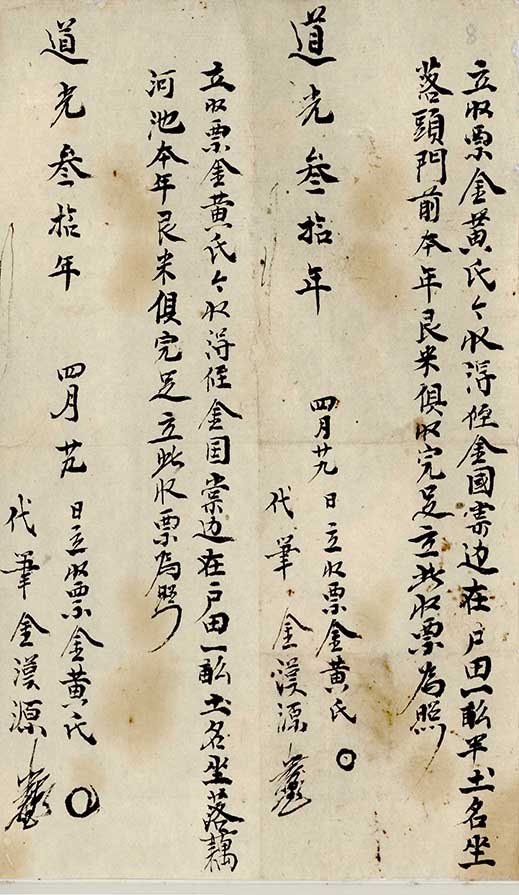 立收票金黄氏今收得侄金國棠边在户田一畝平土名坐
落頭門前本年艮米俱收完足立此收票為照
道光叁拾年
四月廿九日立收票金黄氏
代筆金漢源
立收票金黄氏今收得侄金国棠边在户田一畝土名坐落藕
河池本年艮米俱完足立此收票為照
道光叁拾年
四月廿九日立收票金黄氏
代筆金漢源
8